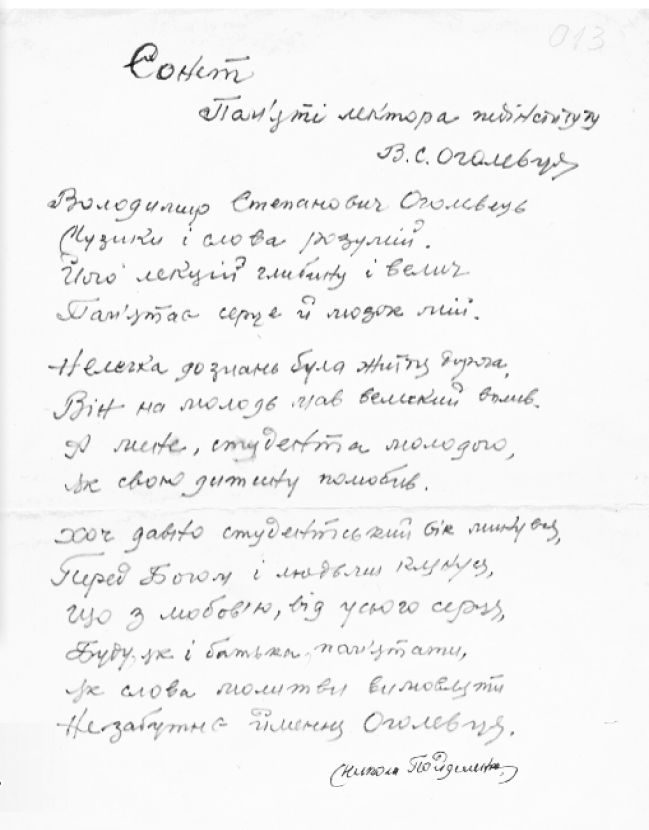 013
Сонет
Пам'яті лектора педінституту
В.С. Оголевця
Володимир Степанович Оголевець
Музики і слова розумій.
Його лекцій глибину і велич
Пам'ятає серце й мозок мій.
Нелегка до знань була життя дорога,
Він на молодь мав великий вплив.
А мене, студента молодого,
Як свою дитину полюбив.
Хоч давно студентський вік минувся,
Перед Богом і людьми клянуся,
Що з любов'ю, від усього серця,
Буду як і батька пам'ятати,
Як слова молитви вимовляти
Незабутнє ймення Оголевця.